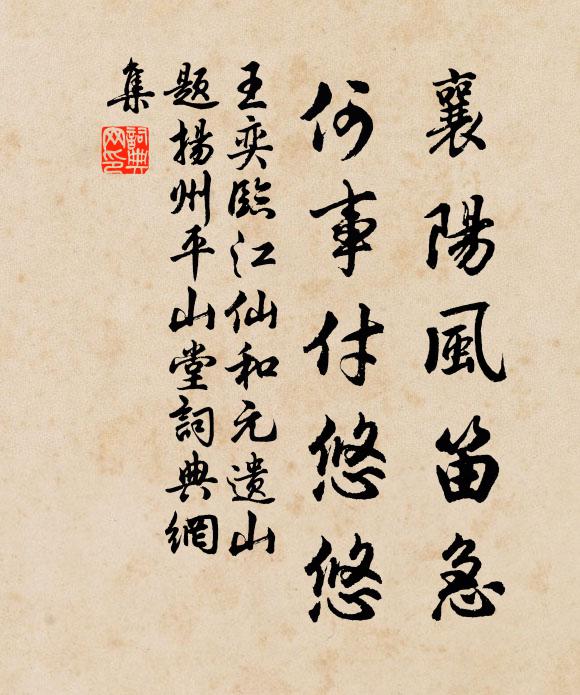 襄陽風笛急
何事付悠悠
王奕臨江仙和元遺山
題揚州平山堂詞典網
集
詞典網印